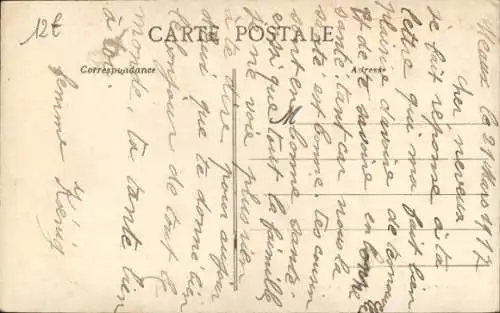 12t
CARTE POSTALE
Correspondance
Adresse
Meaux le 21 Mars 1917
cher neveux
se fait réponse à ta
lettre qui ma fait bien
plaisir d'avoire de tes nouv
et de te savoire en bonne
santé tant car nous la
santé est bonne. tes cousin
sont en bonne santé
ainsi que tout la famille
je ne voie plus rien
à te dire pour aujour
d'hui que te donné bien
le bonjour de tout le
monde. ta tante bien
à toi.
femme Kénig